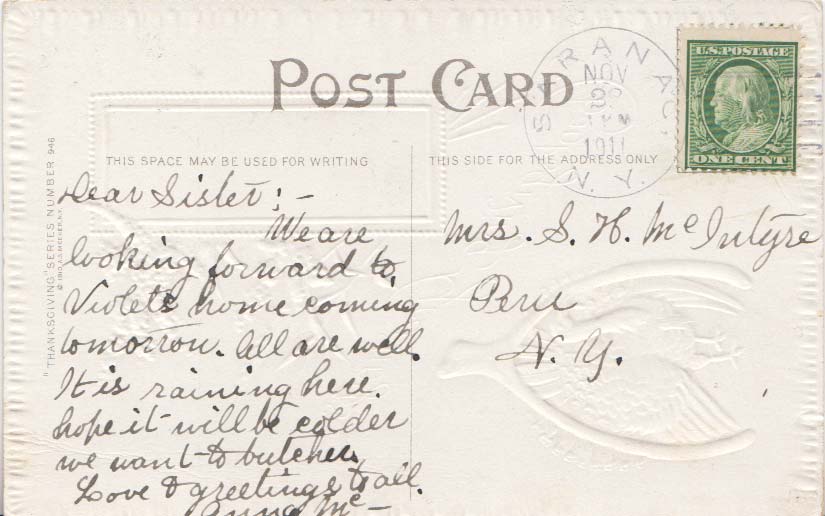 POST CARD
THIS SPACE MAY BE USED FOR WRITING
THIS SIDE FOR THE ADDRESS ONLY
"THANKSGIVING" SERIES NUMBER 946
SARANAC,
NOV
1911
N. Y.
U.S. POSTAGE
ONE CENT
Dear Sister: -
We are
looking forward to
Violets home coming
tomorrow. All are well.
It is raining here.
hope it will be colder
we want to butcher.
Love & greetings to all.
Anna Mc -
Mrs. S. H. McIntyre
Peru
N. Y.